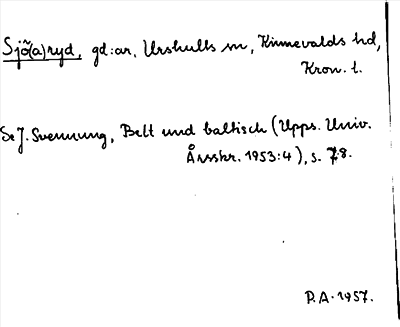 Sjö̃(a)ryd, gd:ar, Urshults sn, Kinnevalds hd,
Kron. l.
Se J. Svennung, Belt und baltisch (Upps. Univ.
Årsskr. 1953:4), s. 78.
P.A. 1957.